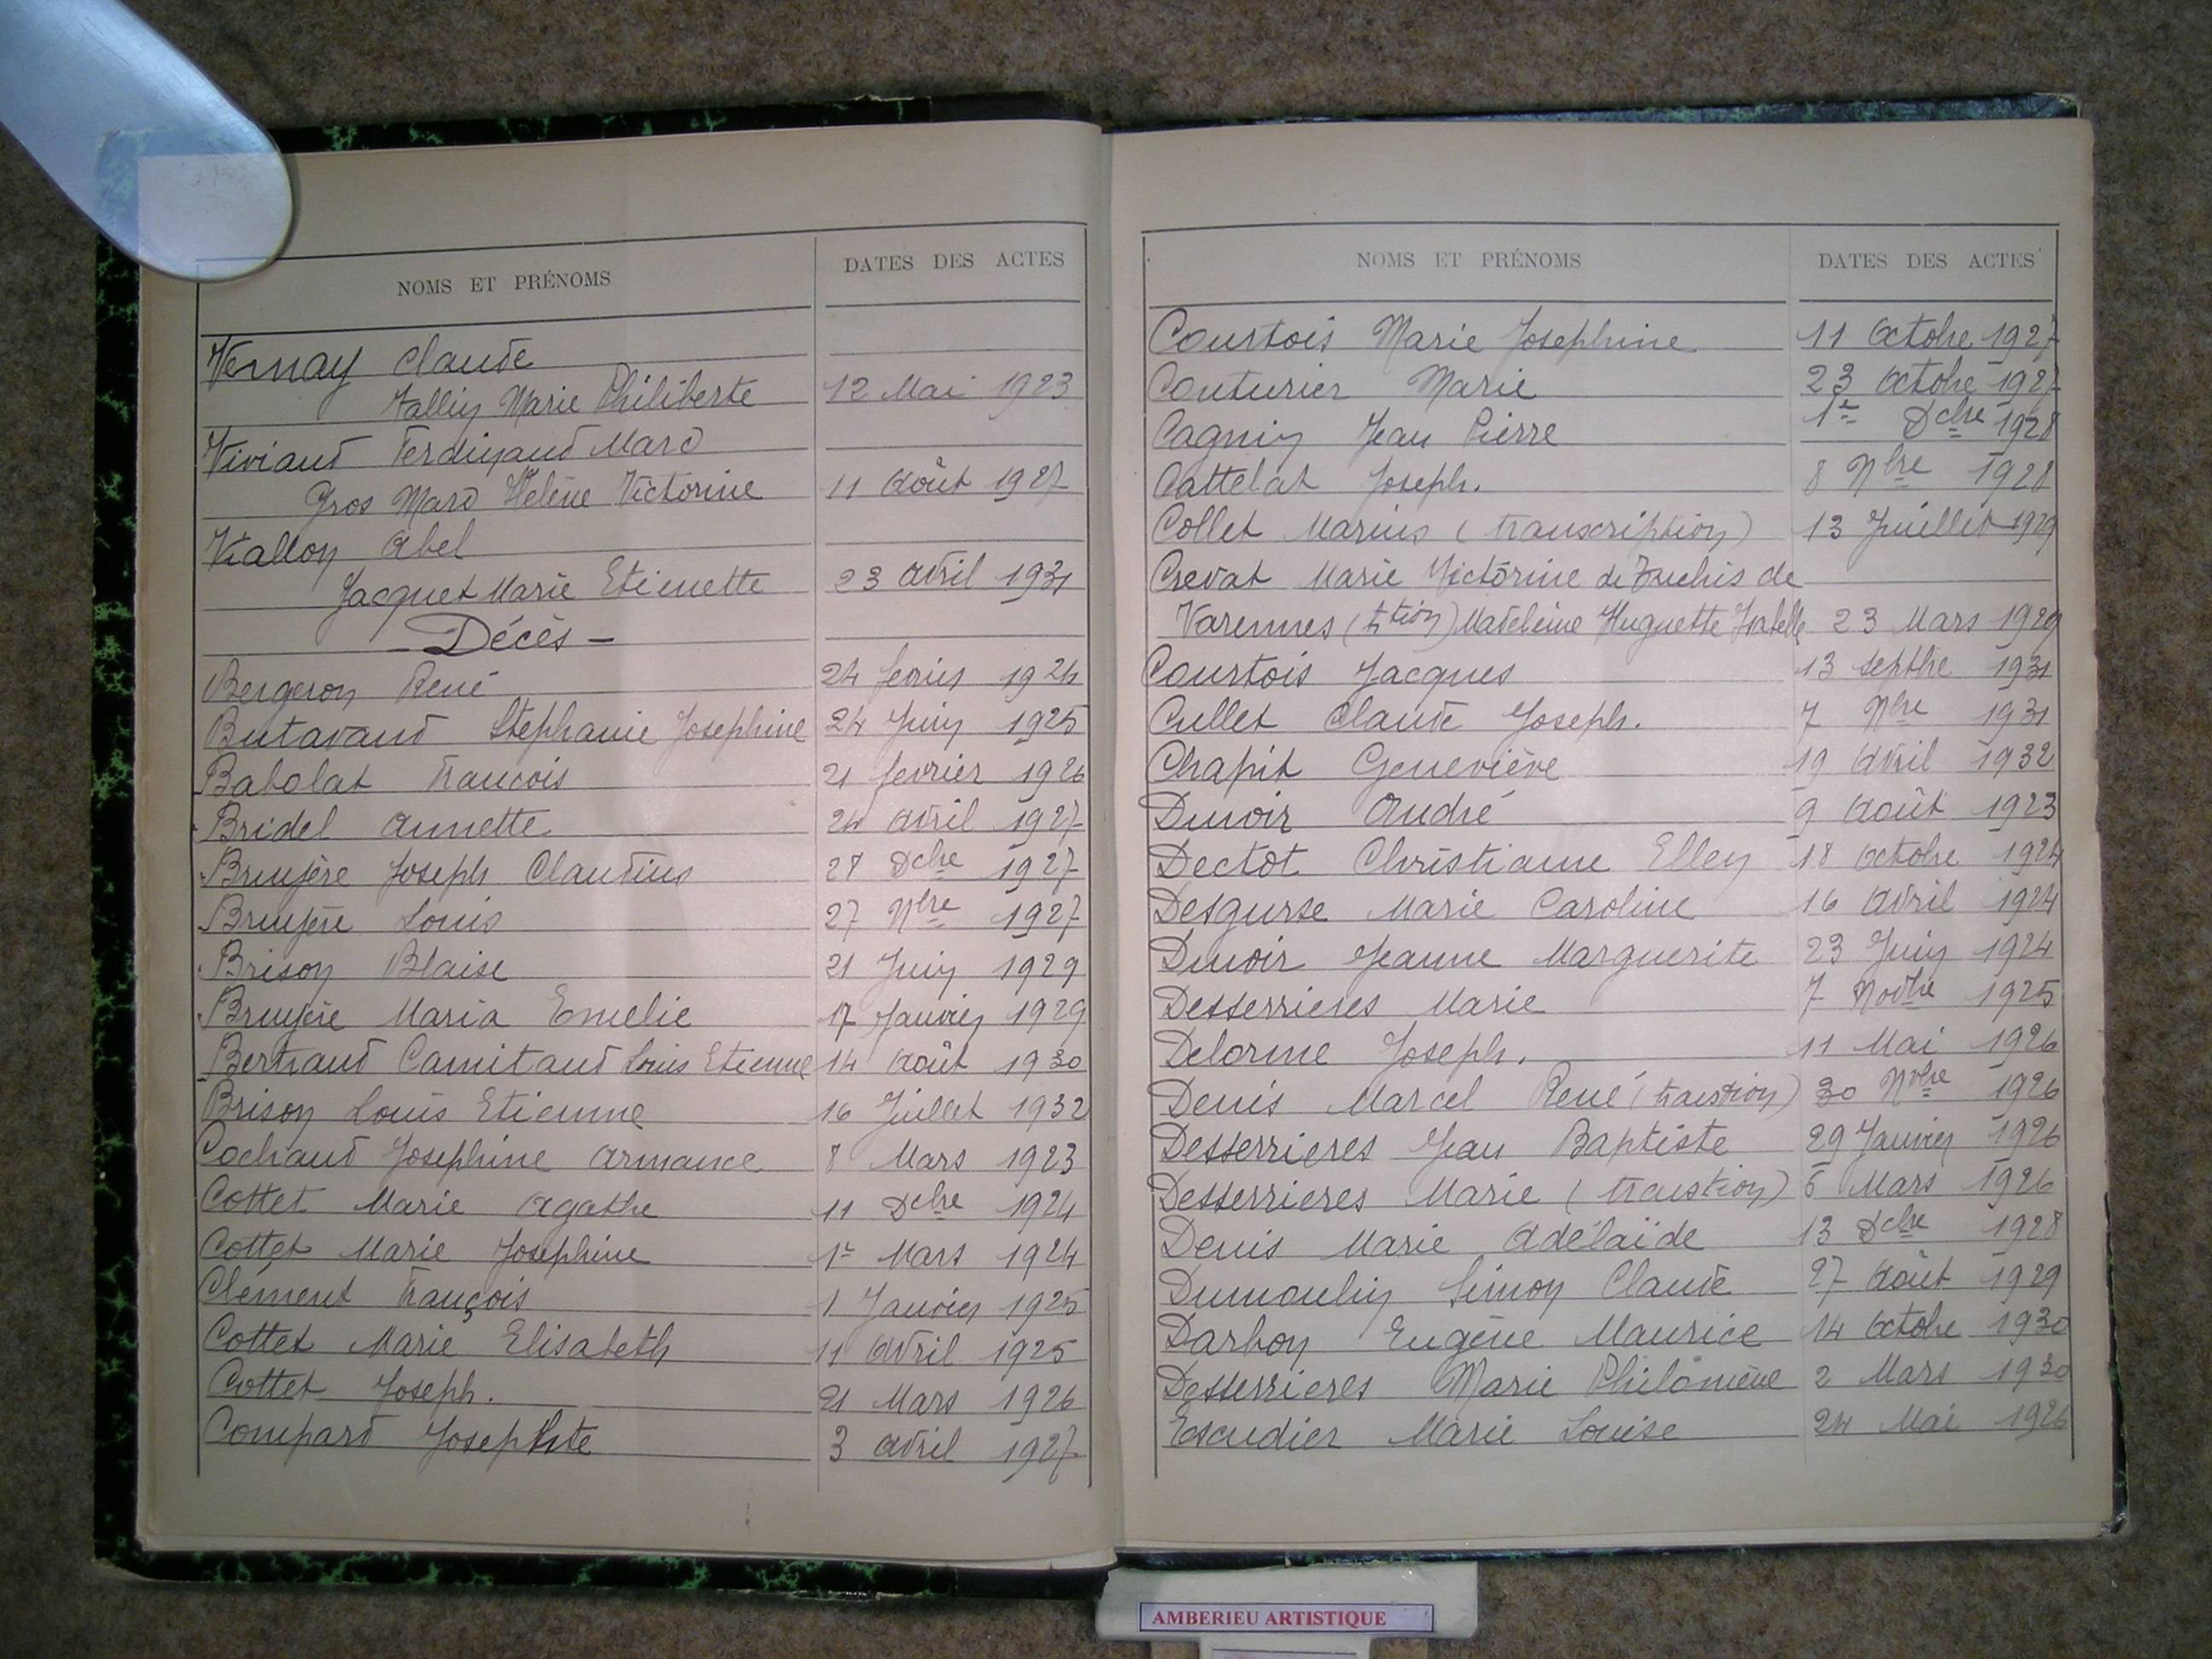 NOMS ET PRÉNOMS DATES DES ACTES
Vernay Claude
Marie Philiberte 12 Mai 1923
Viviand Ferdinand Marc
Gros Marc Hélène Victorine 11 Août 1927
Viallon Abel
Jacquet Marie Etienette 23 Avril 1931
- Décès -
Bergeron René 24 1924
Butavand Stephanie Josephine 24 Juin 1925
Babolat Francois 21 fevrier 1926
Bridel Annette 24 Avril 1927
Bruyère Joseph Claudius 28 Dcbre 1927
Bruyère Louis 27 Nbre 1927
Brison Blaise 21 Juin 1929
Bruyère Maria Emelie 17 Janvier 1929
Bertrand Camitand Louis Etienne 14 Août 1930
Brison Louis Etienne 16 Juillet 1932
Cochaud Josephine Armance 8 Mars 1923
Cottet Marie Agathe 11 Dcbre 1924
Cottet Marie Josephine 1er Mars 1924
Clément François 1 Janvier 1925
Cottet Marie Elisabeth 11 Avril 1925
Cottet Joseph. 21 Mars 1926
Compard Josephte 3 Avril 1927
NOMS ET PRÉNOMS DATES DES ACTES
Courtois Marie Josephine 11 Octobre 1927
Couturier Marie 23 Octobre 1927
Cagnin Jean Pierre 1er Dcbre 1928
Cattelat Joseph. 8 Nbre 1928
Collet Marius (transcription) 13 Juillet 1929
Crevat Marie Victorine de
Varennes (ttion) Madeleine Huguette Isabelle 23 Mars 1929
Courtois Jacques 13 septbre 1931
Cullet Claude Joseph. 7 Nbre 1931
Chapit Geneviève 19 Avril 1932
Dunoir André 9 Août 1923
Dectot Christiane Ellen 18 Octobre 1924
Desgurse Marie Caroline 16 Avril 1924
Dunoir Jeanne Marguerite 23 Juin 1924
Desserrieres Marie 7 Novbre 1925
Delorme Joseph. 11 Mai 1926
Denis Marcel René (transtion) 30 Nvbre 1926
Desserrieres Jean Baptiste 29 Janvier 1926
Desserrieres Marie (transtion) 6 Mars 1926
Denis Marie Adélaïde 13 Dcbre 1928
Dumoulin Simon Claude 27 Août 1929
Darbon Eugène Maurice 14 Octobre 1930
Desserrieres Marie Philomène 2 Mars 1930
Escudier Marie Louise 24 Mai 1926
AMBERIEU ARTISTIQUE